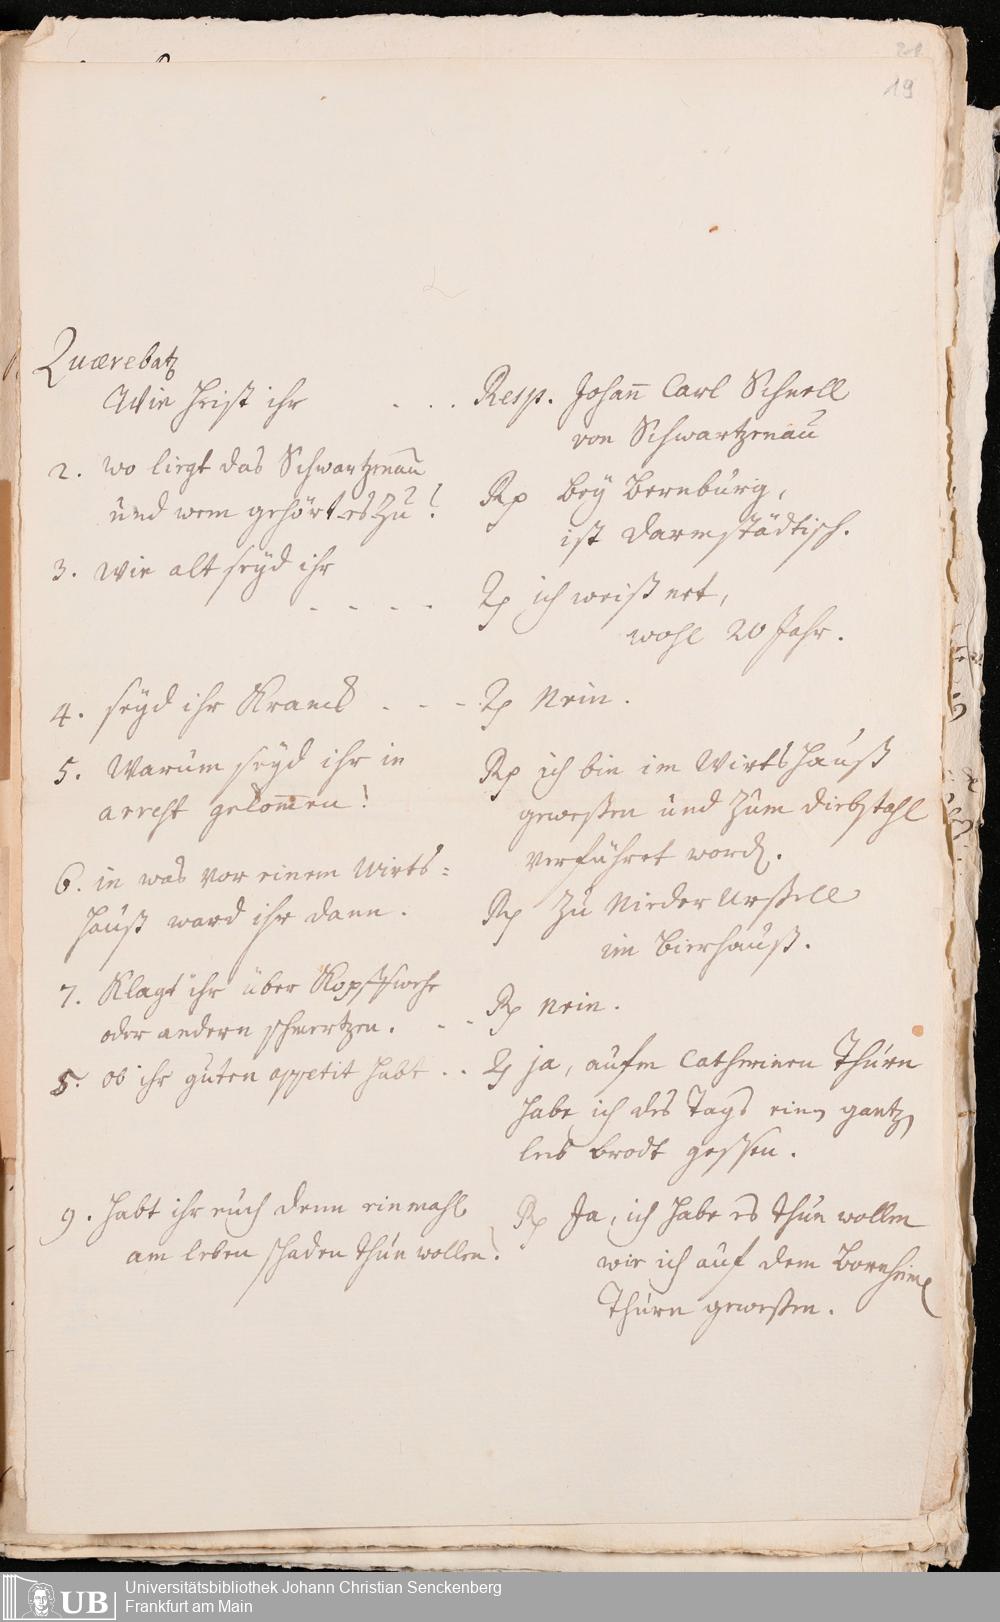 19
Quærebatz
Wie heist ihr . . . Resp. Johan̄ Carl Schnell
von Schwartzenau
2. wo liegt das Schwartzenau
und wem gehört es zu? Rp bey Bernburg,
ist Darmstädtisch.
3. wie alt seyd ihr
. . . . Rp ich weiß net,
wohl 20 Jahr.
4. seyd ihr Kranck . . . Rp Nein.
5. Warum seyd ihr in
arrest gekom̄en? Rp ich bin im Wirtshauß
geweßen und zum diebstahl
verführet word.
6. in was vor einem Wirts=
hauß ward ihr dann. Rp zu Nieder Urßell
im Bierhauß.
7. Klagt ihr über Kopffwehe
oder andern schmertzen. . . Rp nein.
8. ob ihr guten appetit habt . . Rp ja, aufm Catherinen Thurn
habe ich des Tags ein gantz
leib brodt gessen.
9. habt ihr euch denn einmahl
am leben schaden thun wollen? Rp Ja, ich habe es thun wollen
wie ich auf dem Bornheim
Thurn geweßen.
UB
Universitätsbibliothek Johann Christian Senckenberg
Frankfurt am Main